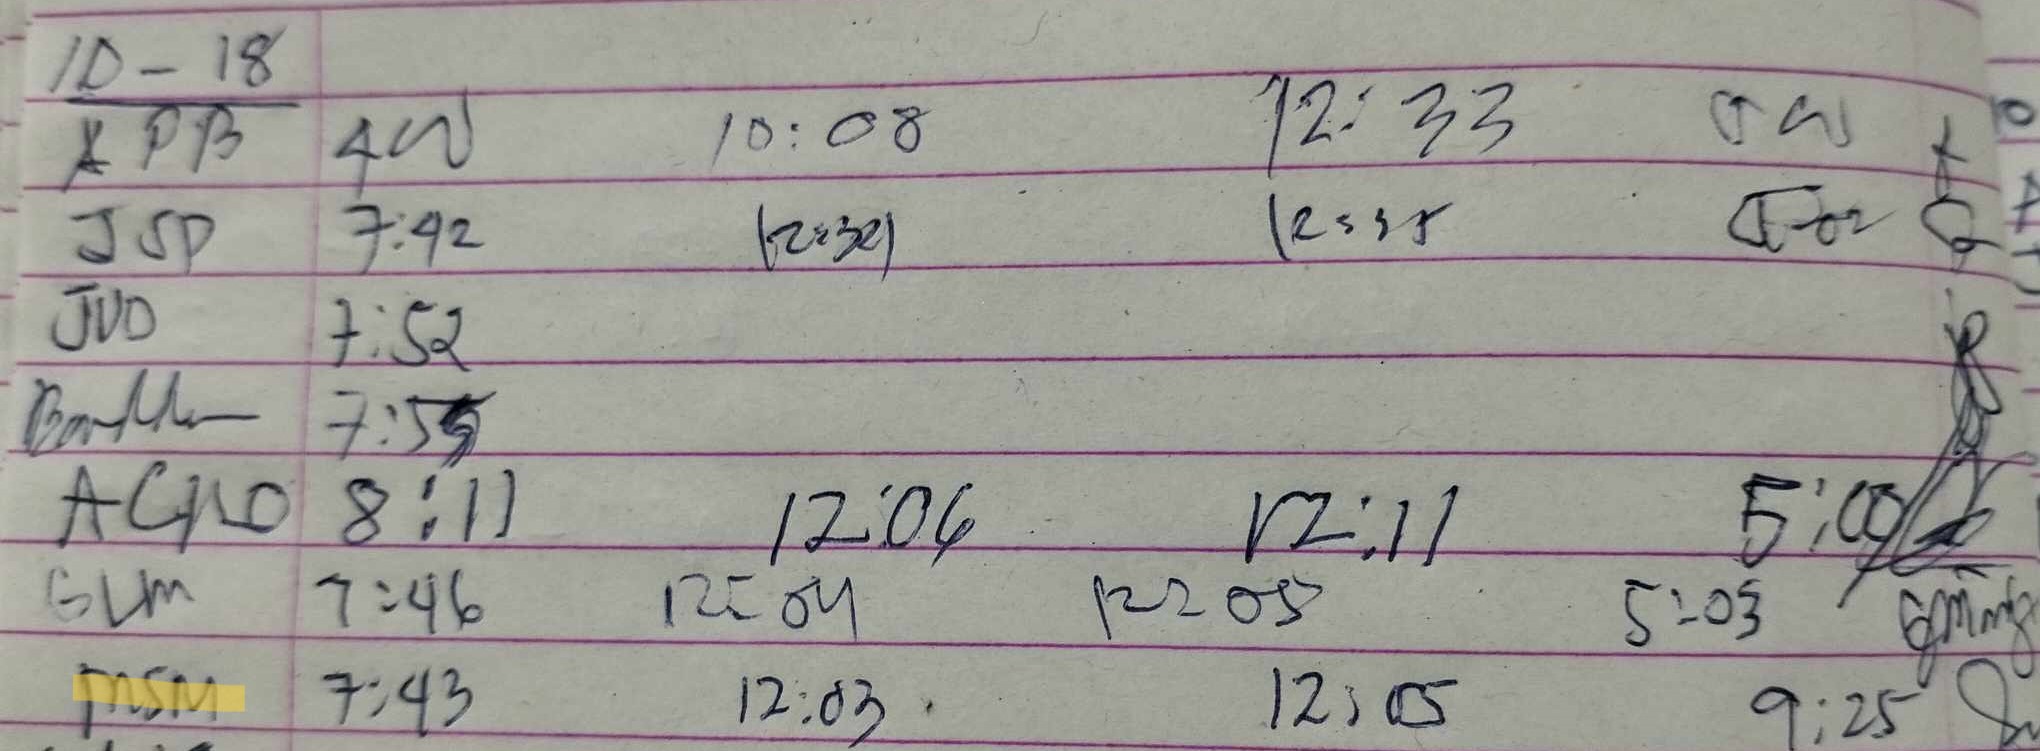 10-18
PB 10:08 12:33
JSP 7:42 12:32 12:35
JVD 7:52
7:55
ACNO 8:11 12:06 12:11 5:00
GLM 7:46 12:04 12:05 5:03
MSM 7:43 12:03 12:05 9:25